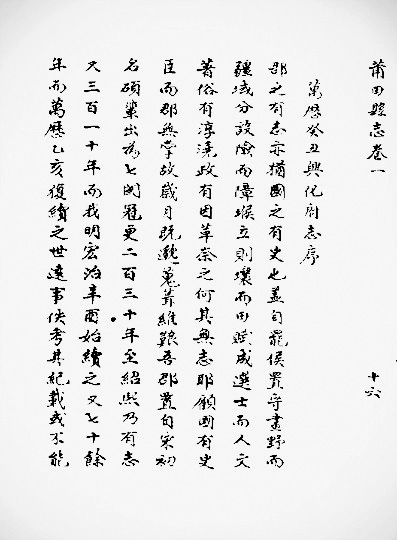 莆田縣志卷一
十六
萬歷癸丑興化府志序
郡之有志亦猶國之有史也蓋自罷侯置守畫野而
疆域分設險而障堠立則壤而田賦成選士而人文
著俗有淳澆政有因革奈之何其無志耶顧國有史
臣而郡無掌故歲月既邈蒐葺維艱吾郡置自宋初
名碩輩出為七閩冠更二百三十年至紹熙乃有志
又三百一十年而我明宏治辛酉始續之又七十餘
年而萬歷乙亥復續之世遠事佚考其紀載或不能